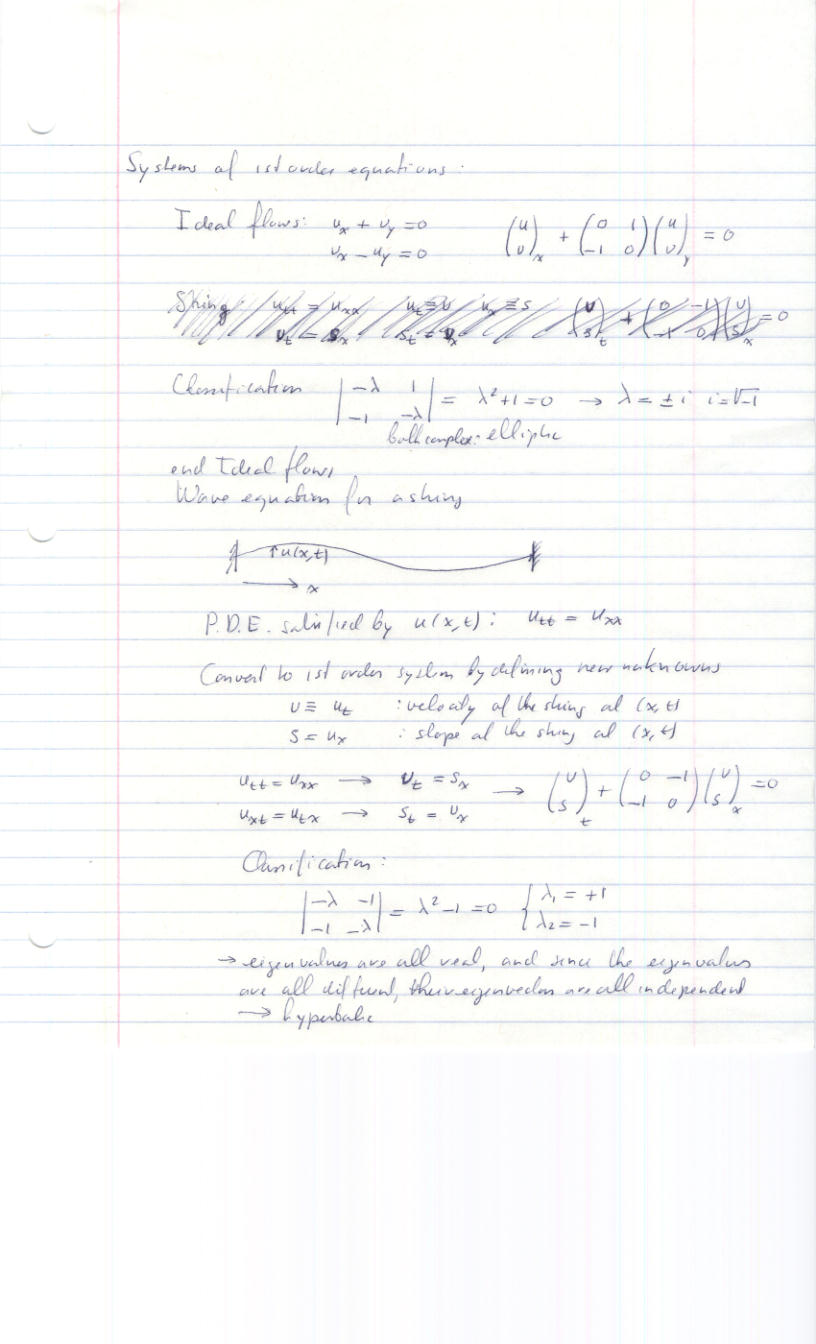 Systems of 1st order equations:
Ideal flows: u_x + v_y = 0    (u v)_x + (0 1 -1 0)(u v)_y = 0
v_x - u_y = 0
String u_tt = u_xx  u_t ≡ v  u_x ≡ s  (v s)_t + (0 -1 -1 0)(v s)_x = 0
v_t = s_x  s_t = v_x
Classification |-λ 1 -1 -λ| = λ² + 1 = 0 → λ = ± i  i = √-1
both complex: elliptic
end Ideal flows
Wave equation for a string
↑u(x,t)
→ x
P.D.E. satisfied by u(x,t): u_tt = u_xx
Convert to 1st order system by defining new unknowns
v ≡ u_t : velocity of the string at (x,t)
s = u_x : slope of the string at (x,t)
u_tt = u_xx → v_t = s_x → (v s)_t + (0 -1 -1 0)(v s)_x = 0
u_xt = u_tx → s_t = v_x
Classification:
|-λ -1 -1 -λ| = λ² - 1 = 0 { λ₁ = +1 λ₂ = -1
→ eigenvalues are all real, and since the eigenvalues
are all different, their eigenvectors are all independent
→ hyperbolic